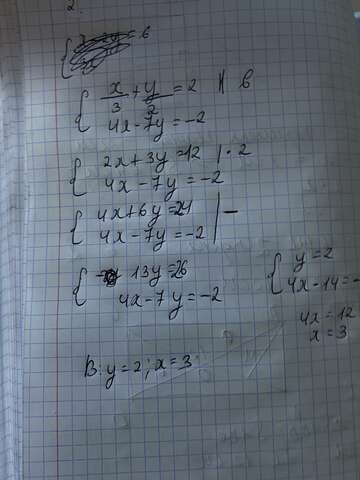 2.
= 6
{ x/3 + y/2 = 2 | 6
4x - 7y = -2
{ 2x + 3y = 12 | · 2
4x - 7y = -2
{ 4x + 6y = 24 | -
4x - 7y = -2
{ 13y = 26
4x - 7y = -2
{ y = 2
4x - 14 = -
4x = 12
x = 3
В: y = 2; x = 3